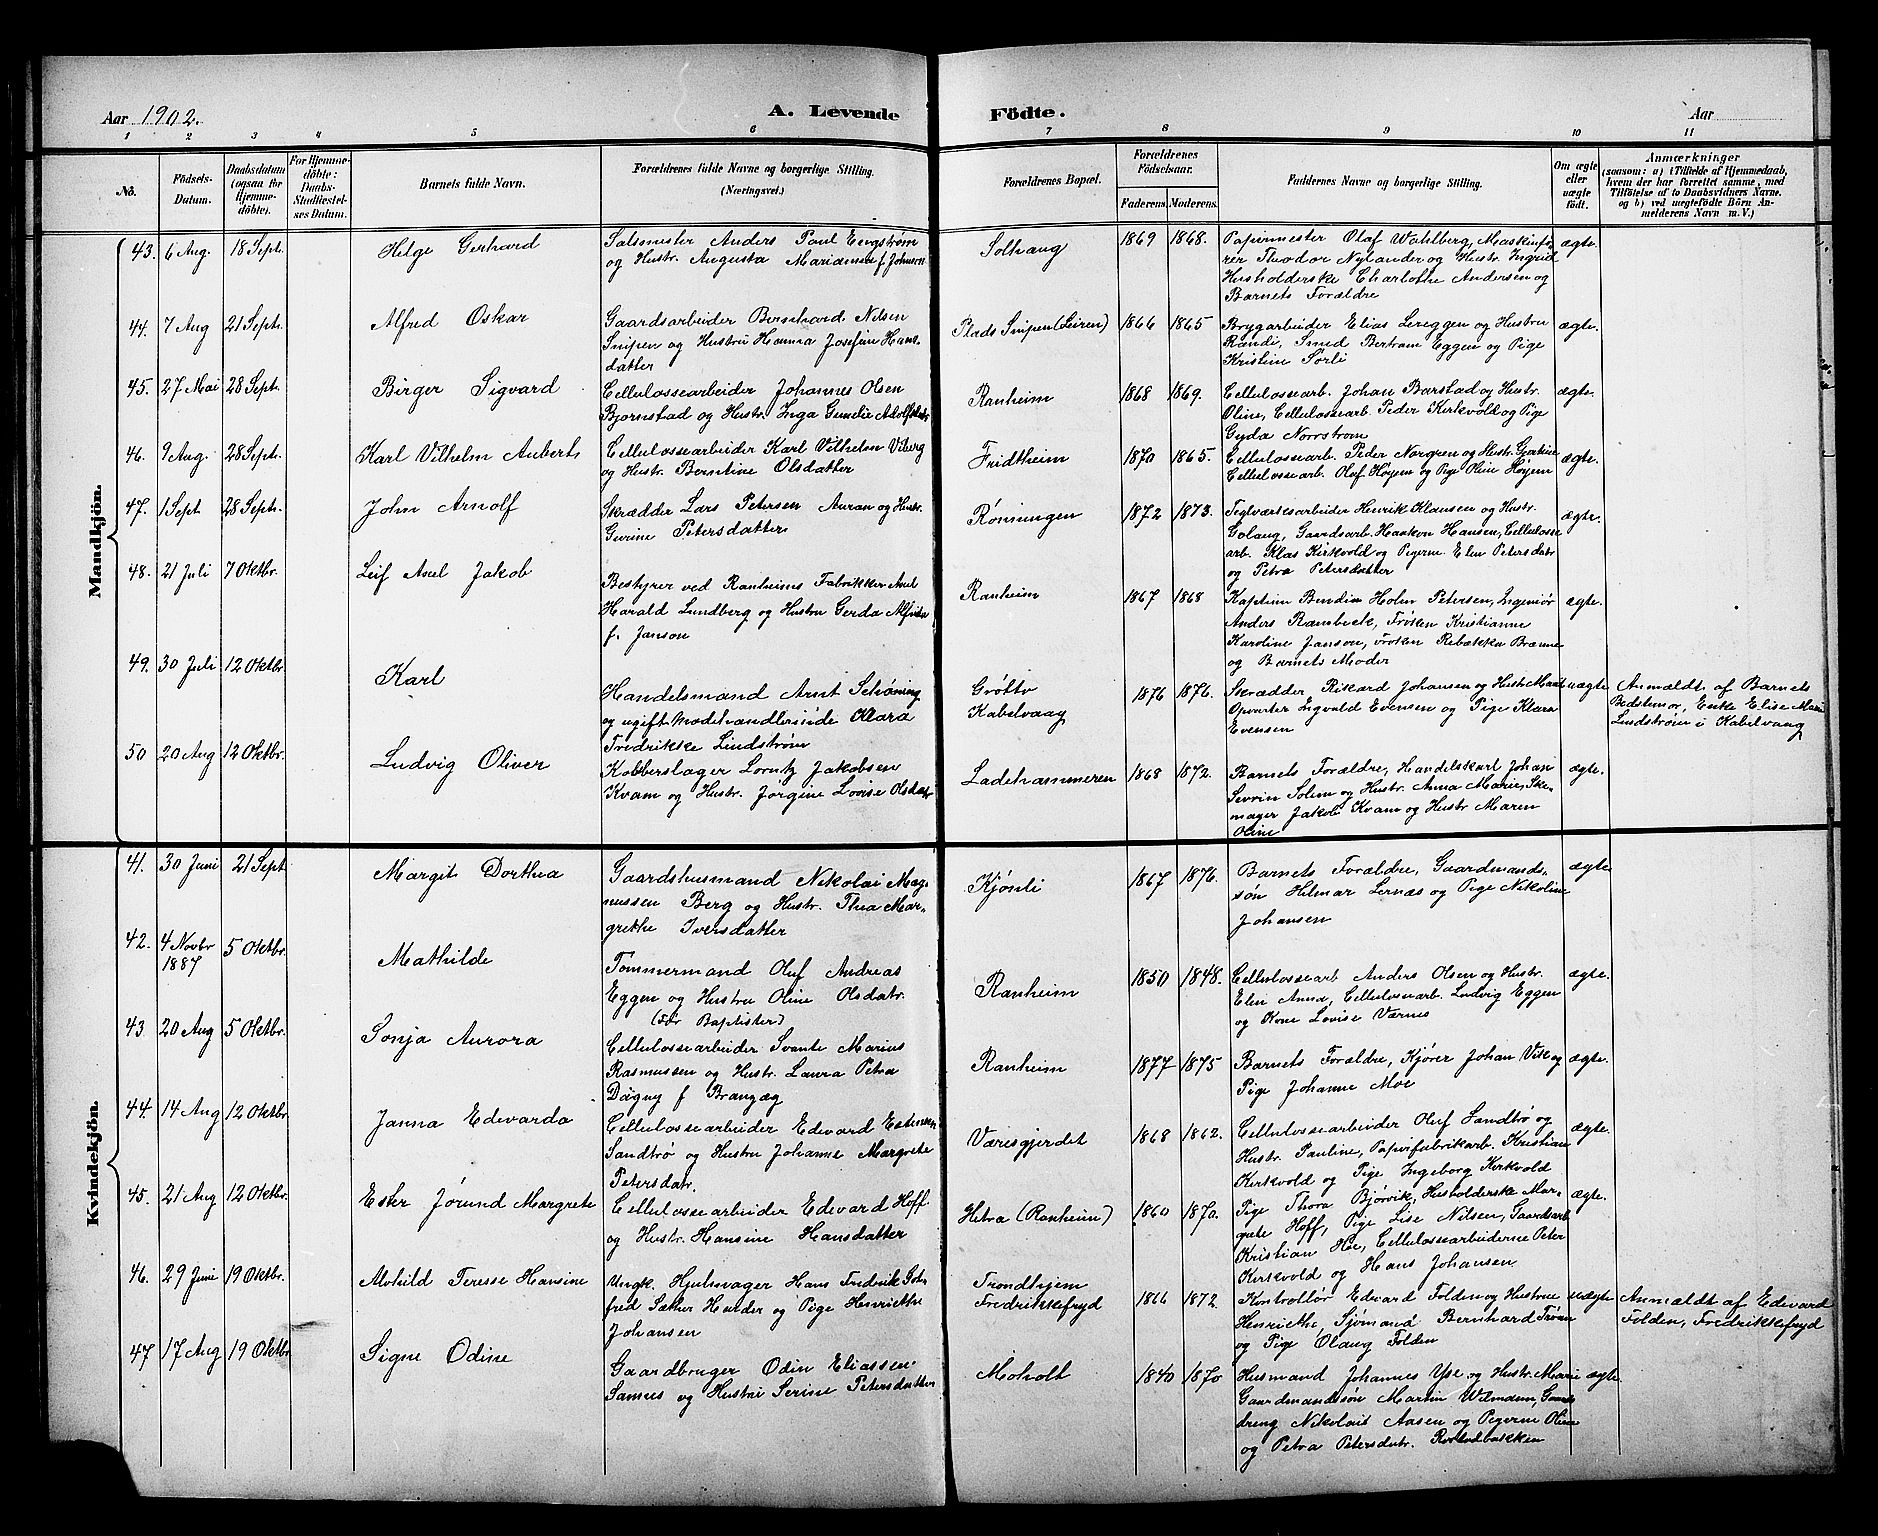 Aar 1902.
A. Levende Födte.
Aar
1 2 3 4 5 6 7 8 9 10 11
No.
Födsels-Datum.
Daabsdatum (ogsaa for Hjemmedöbte).
For Hjemmedöbte: Daabs-Stadfæstelses Datum.
Barnets fulde Navn.
Forældrenes fulde Navne og borgerlige Stilling. (Næringsvei.)
Forældrenes Bopæl.
Forældrenes Födselsaar. Faderens. Moderens.
Faddernes Navne og borgerlige Stilling.
Om ægte eller uægte födt.
Anmærkninger (saasom: a) i Tilfælde af Hjemmedaab, hvem der har forrettet samme, med Tilföielse af to Daabsvidners Navne. og b) ved uegtefödte Börn Anmelderens Navn m. V.)
Mandkjön.
43. 6 Aug. 18 Sept. Helge Gerhard
Salsmester Anders Paul Engstrøm
og Hustr. Augusta f. Johnsen
Solvang 1869 1868.
Papirmester Olaf Wahlberg, Maskinfø
rer Theodor Nylander og Hustr. Ingrid
Husholderske Charlothe Andersen og
Barnets Forældre
ægte.
44. 7 Aug 21 Sept. Alfred Oskar
Gaardsarbeider Bernhard Nilsen
Snipen og Hustru Hanna Josefine Hans-
datter
Plads Snipen (Leiren) 1866 1865
Brygarbeider Elias Lereggen og Hustru
Randi, Smed Bertram Eggen og Pige
Kristine Sørli
ægte.
45. 27 Mai 28 Sept. Birger Sigvard
Cellulossearbeider Johannes Olsen
Bjørnstad og Hustr. Inga Gundie Adolfsdatr
Ranheim 1868 1869.
Cellulossearb. Johan Barstad og Hustr.
Oline, Cellulossearb. Peder Kirkvold og Pige
Gyda Norrstrøm
ægte.
46. 9 Aug. 28 Sept. Karl Vilhelm Auberth
Cellulossearbeider Karl Vilhelm Viberg
og Hustr. Berntine Olsdatter
Fridtheim 1870 1865.
Cellulossearb. Peder Norgren og Hustr. Gjertine
Cellulossearb. Oluf Høyem og Pige Oline Høyem
ægte.
47. 1 Sept 28 Sept. John Arnolf
Skrædder Lars Petersen Auran og Hustr.
Gurine Petersdatter
Rønningen 1872 1873.
Teglværksarbeider Henrik Klausen og Hustr.
Golaug, Gaardsarb. Haakon Hansen, Cellulosse
arb. Klas Kirkvold og Pigerne Elen Petersdatr
og Petra Petersdatter
ægte.
48. 21 Juli 7 Oktbr. Leif Axel Jakob
Bestyrer ved Ranheims Fabrikker Axel
Harald Lundberg og Hustru Gerda Alfrida
f. Janson
Ranheim 1867 1868
Kaptein Bendix Holm Petersen, Ingeniør
Anders Rambeck, Frøken Kristianne
Karoline Janson, Frøken Rebækka Brænne
og Barnets Moder
ægte.
49. 30 Juli 12 Oktbr. Karl
Handelsmand Arnt Schøning
og ugift Modehandlerinde Klara
Fredrikke Lindstrøm
Grøttø
Kabelvaag
1876 1876.
Skrædder Rikard Johansen og Hustr.
Opvarter Ingvald Evensen og Pige Klara
Evensen
uægte
Anmældt af Barnets
Bedstemor, Enke Elise Marie
Lindstrøm i Kabelvaag
50 20 Aug 12 Oktbr. Ludvig Oliver
Kobberslager Lorntz Jakobsen
Kvam og Hustr. Jørgine Lovise Olsdatr
Ladehammeren 1868 1872.
Barnets Forældre, Handelskarl Johan
Sevrin Solem og Hustr. Anna Marie, Sko-
mager Jakob Kvam og Hustr Maren
Oline
ægte.
Kvindekjön.
41. 30 Juni 21 Sept Margit Dorthea
Gaardshusmand Nikolai Mag-
nussen Berg og Hustr. Thea Mar-
grethe Iversdatter
Kjønli 1867 1876.
Barnets Forældre, Gaardmands-
søn Hilmar Lernæs og Pige Nikoline
Johansen
ægte
42. 4 Novbr 1887 5 Oktbr. Mathilde
Tømmermand Oluf Andreas
Eggen og Hustru Oline Olsdatr.
(før Baptister)
Ranheim 1850 1848.
Cellulossearb Anders Olsen og Hustr.
Elen Anna, Cellulossearb. Ludvig Eggen
og Kone Lovise Værnes
ægte.
43 20 Aug 5 Oktbr. Sonja Aurora
Cellulossearbeider Svante Marius
Rasmussen og Hustr. Laura Petra
Dagny f
Ranheim 1877 1875
Barnets Forældre, Kjører Johan Vik og
Pige Johanne Moe
ægte.
44. 14 Aug 12 Oktbr. Janna Edevarda
Cellulossearbeider Edevard Estensen
Sandtrø og Hustru Johanne Margrete
Petersdatr.
Væresgjerdet 1868 1862.
Cellulossearbeider Oluf Sandtrø og
Hustr. Pauline, Papirfabrikarb. Kristian
Kirkvold og Pige Ingeborg Kirkvold
ægte.
45. 21 Aug 12 Oktbr. Ester Jørund Margrete
Cellulossearbeider Edevard Hoff
og Hustr. Hansine Hansdatter
Hetra (Ranheim) 1860 1870.
Pige Thora Bjørvik, Husholderske Mar-
grete Hoff, Pige Lise Nilsen, Gaardsarb
Kristian Hoe, Cellulossearbeiderne Peter
Kirkvold og Hans Johansen
ægte.
46. 29 Juni 19 Oktbr. Alvhild Terese Hansine
Ungk. Hjulmager Hans Fredrik Got-
fred Sæther Halder og Pige Henriette
Johansen
Trondhjem
Fredrikkefryd
1866 1872.
Kontrollør Edvard Folden og Hustrue
Henriette, Sjømand Bernhard Trøan
og Pige Olaug Folden
uægte
Anmældt af Edevard
Folden, Fredrikkefryd
47 17 Aug 19 Oktbr Signe Odine
Gaardbruger Odin Eliassen
Samus og Hustru Serine Petersdatter
Moholt 1840 1870
Husmand Johannes Use og Hustr. Marie
Gaardmandssøn Martin Wilmann, Gaard
dreng Nikolai Aasen og Pigerne Oline
og Petra Petersdatr. Rotvolbakken
ægte.